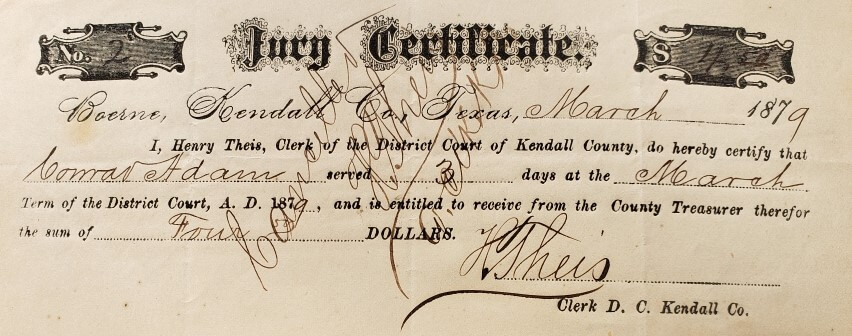 No. 2 Jury Certificate. $ 4.50
Boerne, Kendall Co., Texas, March 1879
I, Henry Theis, Clerk of the District Court of Kendall County, do hereby certify that
Conrad Adam served 3 days at the March
Term of the District Court, A. D. 1879, and is entitled to receive from the County Treasurer therefor
the sum of Four DOLLARS.
H. Theis
Clerk D. C. Kendall Co.
Cancelled